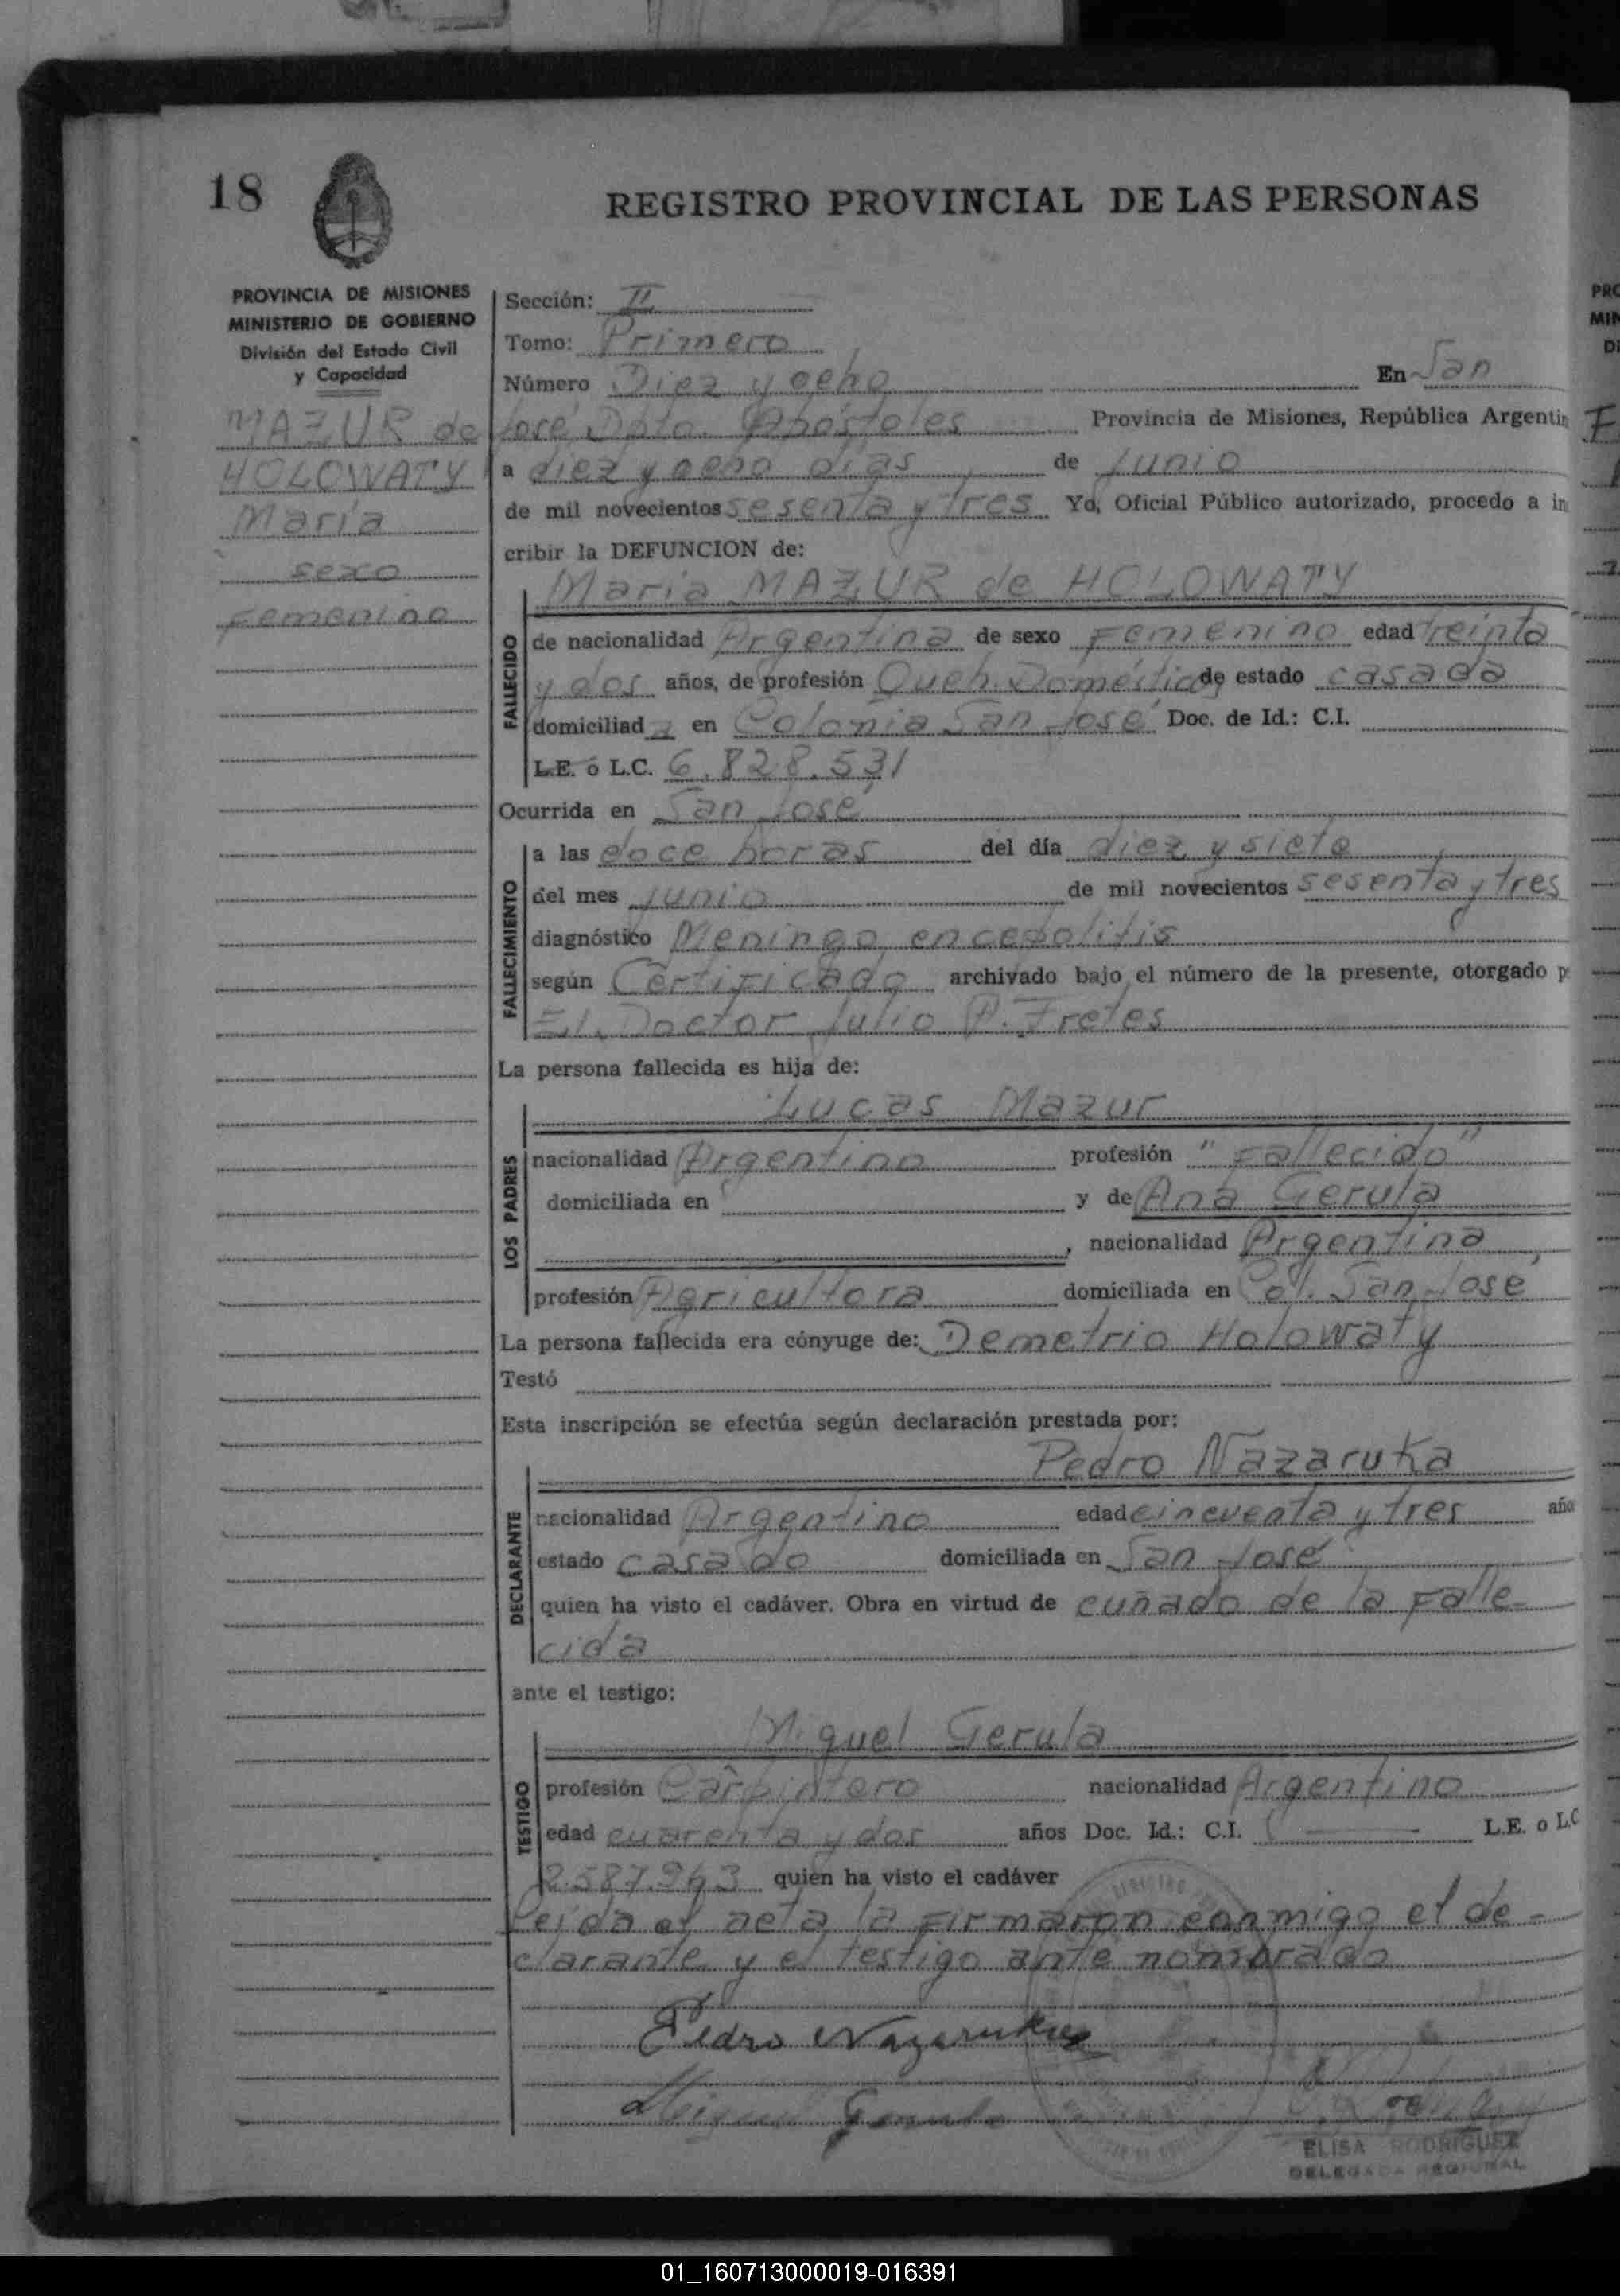 18
REGISTRO PROVINCIAL DE LAS PERSONAS
PROVINCIA DE MISIONES
MINISTERIO DE GOBIERNO
División del Estado Civil
y Capacidad
MAZUR de
HOLOWATY
María
sexo
Femenino
Sección: II
Tomo: Primero
Número Diez y ocho En San
José Dpto. Apóstoles Provincia de Misiones, República Argentin
a diez y ocho días de Junio
de mil novecientos sesenta y tres Yo, Oficial Público autorizado, procedo a in
cribir la DEFUNCION de:
María MAZUR de HOLOWATY
FALLECIDO
de nacionalidad Argentina de sexo Femenino edad treinta
y dos años, de profesión Queh. Domésticos de estado casada
domiciliad a en Colonia San José Doc. de Id.: C.I.
L.E. o L.C. 6.828.531
Ocurrida en San José
FALLECIMIENTO
a las doce horas del día diez y siete
del mes Junio de mil novecientos sesenta y tres
diagnóstico Meningo encefalitis
según Certificado archivado bajo el número de la presente, otorgado p
El Doctor Julio A. Fretes
La persona fallecida es hija de:
Lucas Mazur
LOS PADRES
nacionalidad Argentino profesión "Fallecido"
domiciliada en y de Ana Gerula
, nacionalidad Argentina,
profesión Agricultora domiciliada en Col. San José
La persona fallecida era cónyuge de: Demetrio Holowaty
Testó
Esta inscripción se efectúa según declaración prestada por:
Pedro Nazaruka
DECLARANTE
nacionalidad Argentino edad cincuenta y tres año
estado casado domiciliada en San José
quien ha visto el cadáver. Obra en virtud de cuñado de la falle-
cida
ante el testigo:
Miguel Gerula
TESTIGO
profesión Carpintero nacionalidad Argentino
edad cuarenta y dos años Doc. Id.: C.I. L.E. o L.C
2.587.963 quien ha visto el cadáver
Leída el acta la firmaron conmigo el de-
clarante y el testigo ante nombrado
Pedro Nazaruka
Miguel Gerula
ELISA RODRIGUEZ
DELEGADA REGIONAL
01_160713000019-016391